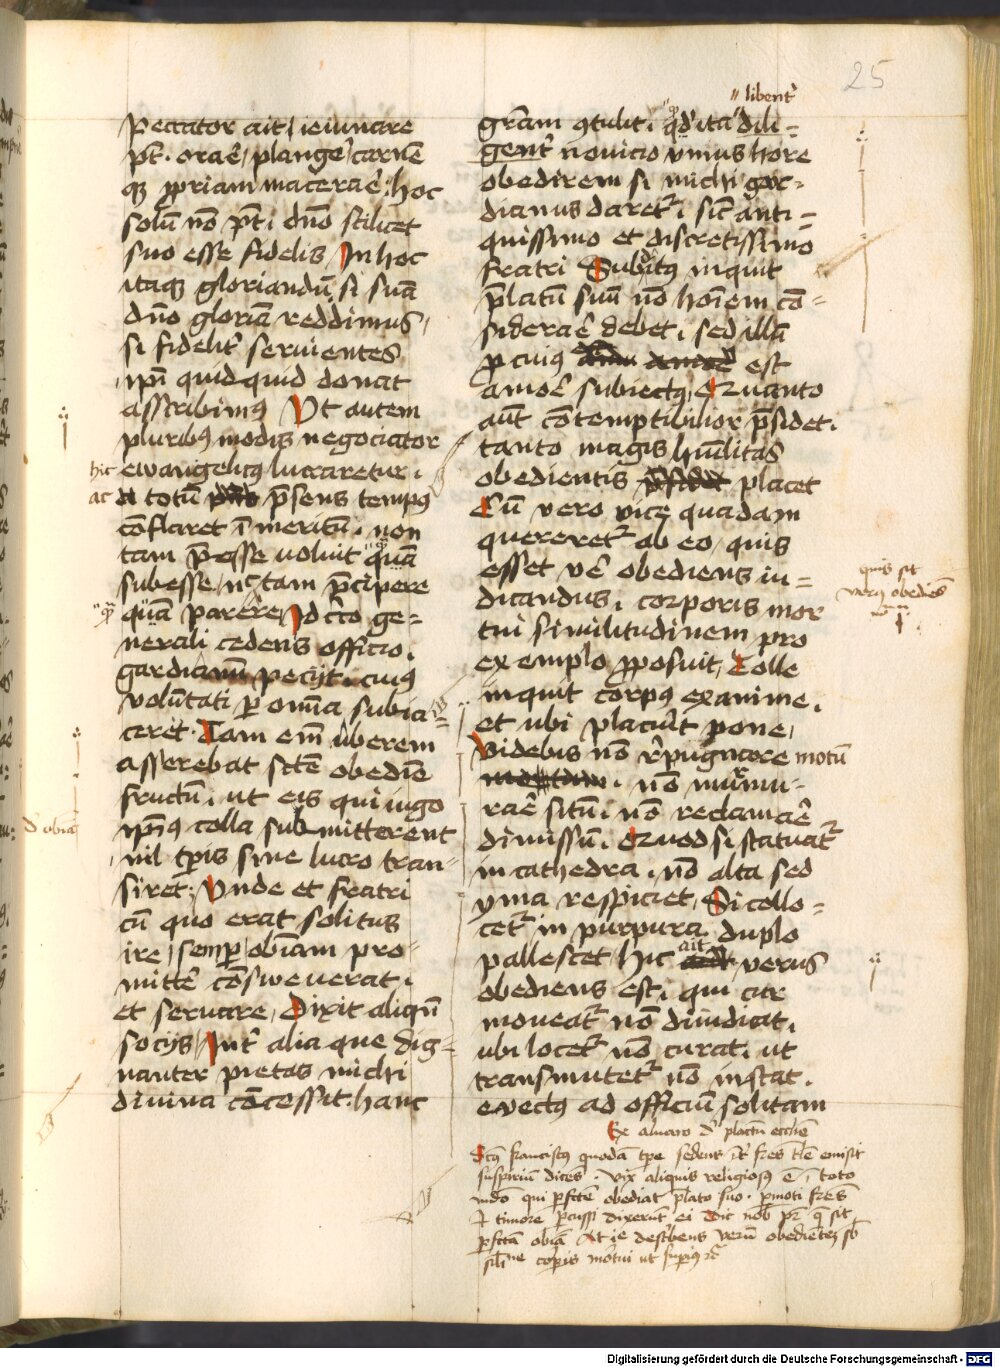 25
peccator ait ieiunare
pt̄. orare᷑ plange᷑ carnē
qꝫ ꝓpriam macerare᷑. hoc
solū nō pt̄. dn̄o scilicet
suo esse fidelis In hoc
itaqꝫ gloriandū si suā
dn̄o gloriā reddimus,
si fidelit᷑ seruientes
ip̄i quidquid donat
asscribimꝰ Ut autem
pluribꝰ modis negociator
hic ewangelicꝰ lucraretur.
ac totū p̄sens tempꝰ
cōflaret ī meritū. non
tam p̄esse uoluit quā
subesse, nō tam p̄cipere
quā parere, Id c̄co ge=
nerali cedens officio.
gardianū pecijt. cuiꝰ
volūtati ꝑ om̄ia subia=
ceret. Tam em̄ uberem
asserebat sc̄te obedīe
fructū. ut eis qui iugo
ip̄iꝰ colla submitterent
nil tꝑis sine lucro tran-
siret; Unde et fratri
cū quo erat solitus
ire, semꝑ obīam pro-
mitte᷑ cōsweuerat.
et seruare, Dixit aliqn̄
socijs, Int᷑ alia que dig=
nanter pietas michi
diuina cōcessit. hanc
libent᷑
gr̄am ꝯtulit. qd̓ ita dili=
gent᷑ nouicio vnius hore
obedirem si michi gar-
dianus daret᷑. sic̄ anti=
quissimo et discretissimo
fratri Subditꝰ inquit
p̄latū suū nō hoīem cō-
siderare᷑ debet. sed illū
ꝓ cuius est
amore᷑ subiectꝰ, Quanto
aūt cōtemptibilior p̄sidet.
tanto magis hūilitas
obedientis placet
Cū vero vice quadam
quereret᷑ ab eo, quis
esset ve᷑ obediens iu=
dicandus. corporis mor
tui similitudinem pro
exemplo ꝓposuit, Tolle
inquit corpꝰ exanime.
et ubi placu᷑it pone,
Videbis nō r̄pugnare motū
nō murmu-
rare᷑ sitū. nō reclamare᷑
dimissū. Quod si statuat᷑
in cathedra. nō alta sed
yma respiciet, Si collo=
cet᷑ in purpura. duplo
pallescet hic ait verus
obediens est. qui cur
moueat᷑ nō diiudicat.
ubi locet᷑ nō curat. ut
transmutet᷑ nō instat.
evectꝰ ad officiū solitam
quis sit
verꝰ obediēs
Ex aluaro d̓ planctu ecclīe
Sc̄us franciscꝰ quodā tꝑe sedens it᷑ fr̄es emisit
suspiriū dicēs. Vix aliquis religiosꝰ ē ī toto
mūdo qui ꝑfctē obediat p̄lato suo. ꝑmoti fr̄es
timore ꝑcussi dixerūt ei Dic nob̄ pr̄ q̄ sit
ꝑfctā obīa At ip̄e desc̓bens verū obedientē sb̓
sil̄ne corꝑis mortui ut supiꝰ
Digitalisierung gefördert durch die Deutsche Forschungsgemeinschaft - DFG